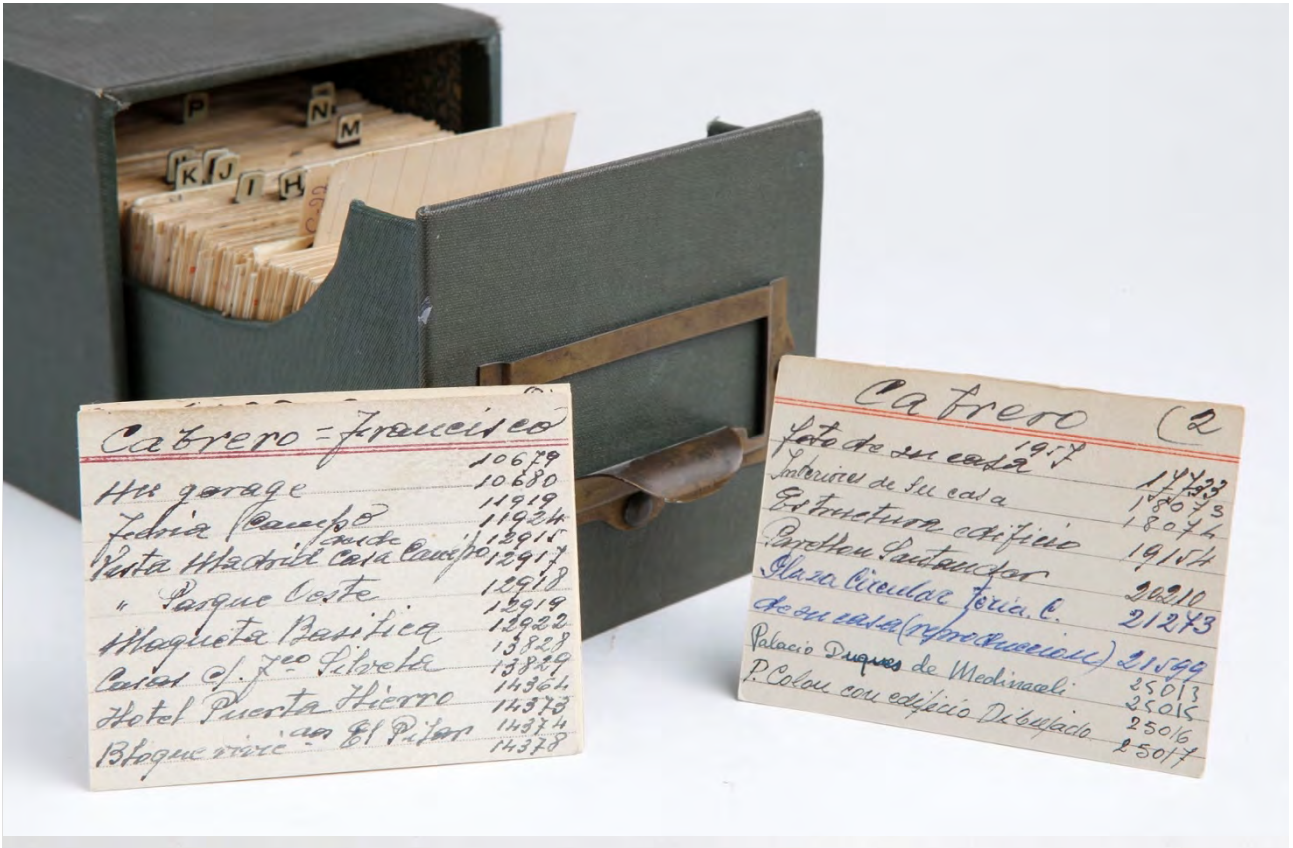 P
N
M
K J
I H
C-22
Cabrero = Francisco
10679
Un garage 10680
11919
Feria Campo 11924
12915
Vista Madrid Casa Campo 12917
" Parque Oeste 12918
12919
Maqueta Basilica 12922
13828
Casas c/. Fco Silvela 13829
14364
Hotel Puerta Hierro 14373
14374
Bloque vivi as El Pilar 14378
Cabrero (2
Foto de su casa
Interiores de su casa 18073
18074
Estructura edificio 19154
Santander 20210
Plaza Circular Feria. C. 21273
de su casa (reproduccion) 21599
Palacio Duques de Medinaceli 25013
25015
P. Colon con edificio Dibujado 25016
25017